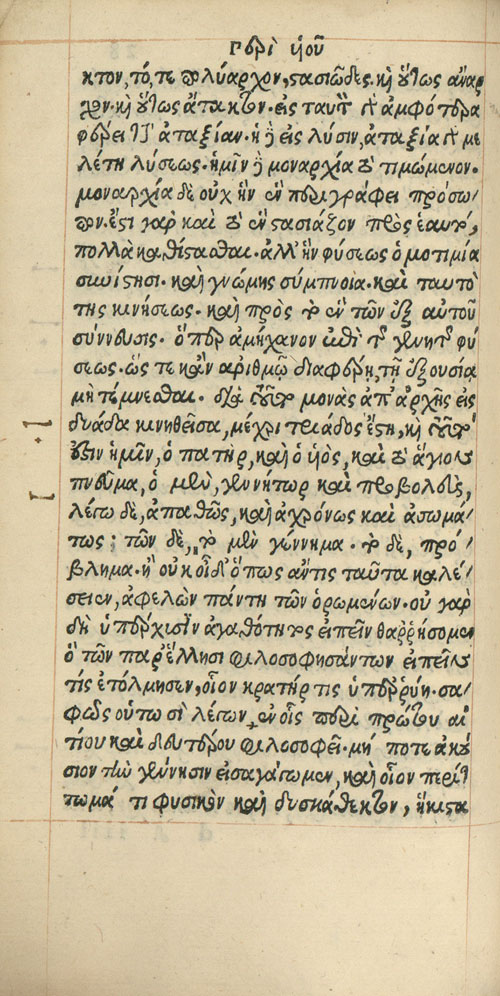 Περὶ υἱοῦ
κτον, τό, τε πολύαρχον, στασιῶδες· καὶ οὕτως ἄναρ
χον· καὶ οὕτως ἄτακτον· εἰς ταυτὸ γὰρ ἀμφότερα
φέρει τὴν ἀταξίαν· ἡ δὲ εἰς λύσιν, ἀταξία γὰρ με
λέτη λύσεως· ἡμῖν δὲ μοναρχία τὸ τιμώμενον·
μοναρχία δὲ οὐχ ἣν ἓν περιγράφει πρόσω
πον· ἔστι γὰρ καὶ τὸ ἓν στασιάζον πρὸς ἑαυτό,
πολλὰ καθίστασθαι· ἀλλ' ἣν φύσεως ὁμοτιμία
συνίστησι· καὶ γνώμης σύμπνοια· καὶ ταυτὸ
της κινήσεως· καὶ πρὸς τὸ ἓν τῶν ἐξ αὐτοῦ
σύννευσις· ὅπερ ἀμήχανον ἐπὶ τῆς γεννητῆς φύ
σεως· ὥς τε κἂν ἀριθμῷ διαφέρῃ, τῇ ἐξουσίᾳ
μὴ τέμνεσθαι· διὰ τοῦτο μονὰς ἀπ' ἀρχῆς εἰς
δυάδα κινηθεῖσα, μέχρι τριάδος ἔστη, καὶ τοῦτό
ἐστιν ἡμῖν, ὁ πατὴρ, καὶ ὁ υἱὸς, καὶ τὸ ἅγιον
πνεῦμα, ὁ μὲν, γεννήτωρ καὶ προβολεὺς,
λέγω δὲ, ἀπαθῶς, καὶ ἀχρόνως καὶ ἀσωμά
τως; τῶν δὲ, τὸ μὲν γέννημα· τὸ δὲ, πρό
βλημα· ἢ οὐκ οἶδ' ὅπως ἄν τις ταῦτα καλέ
σειεν, ἀφελὼν πάντη τῶν ὁρωμένων· οὐ γὰρ
δὴ ὑπέρχυσιν ἀγαθότητος εἰπεῖν θαῤῥήσομεν
ὃ τῶν παρ' ἕλλησι φιλοσοφησάντων εἰπεῖν
τίς ἐτόλμησεν, οἷον κρατήρ τις ὑπερρύη· σα
φῶς οὑτωσὶ λέγων, ἐν οἷς περὶ πρώτου αἰ
τίου καὶ δευτέρου φιλοσοφεῖ· μή ποτε ἀκού
σιον τὴν γέννησιν εἰσαγάγωμεν, καὶ οἷον περίτ
τωμά τι φυσικὸν καὶ δυσκάθεκτον, ἥκιστα